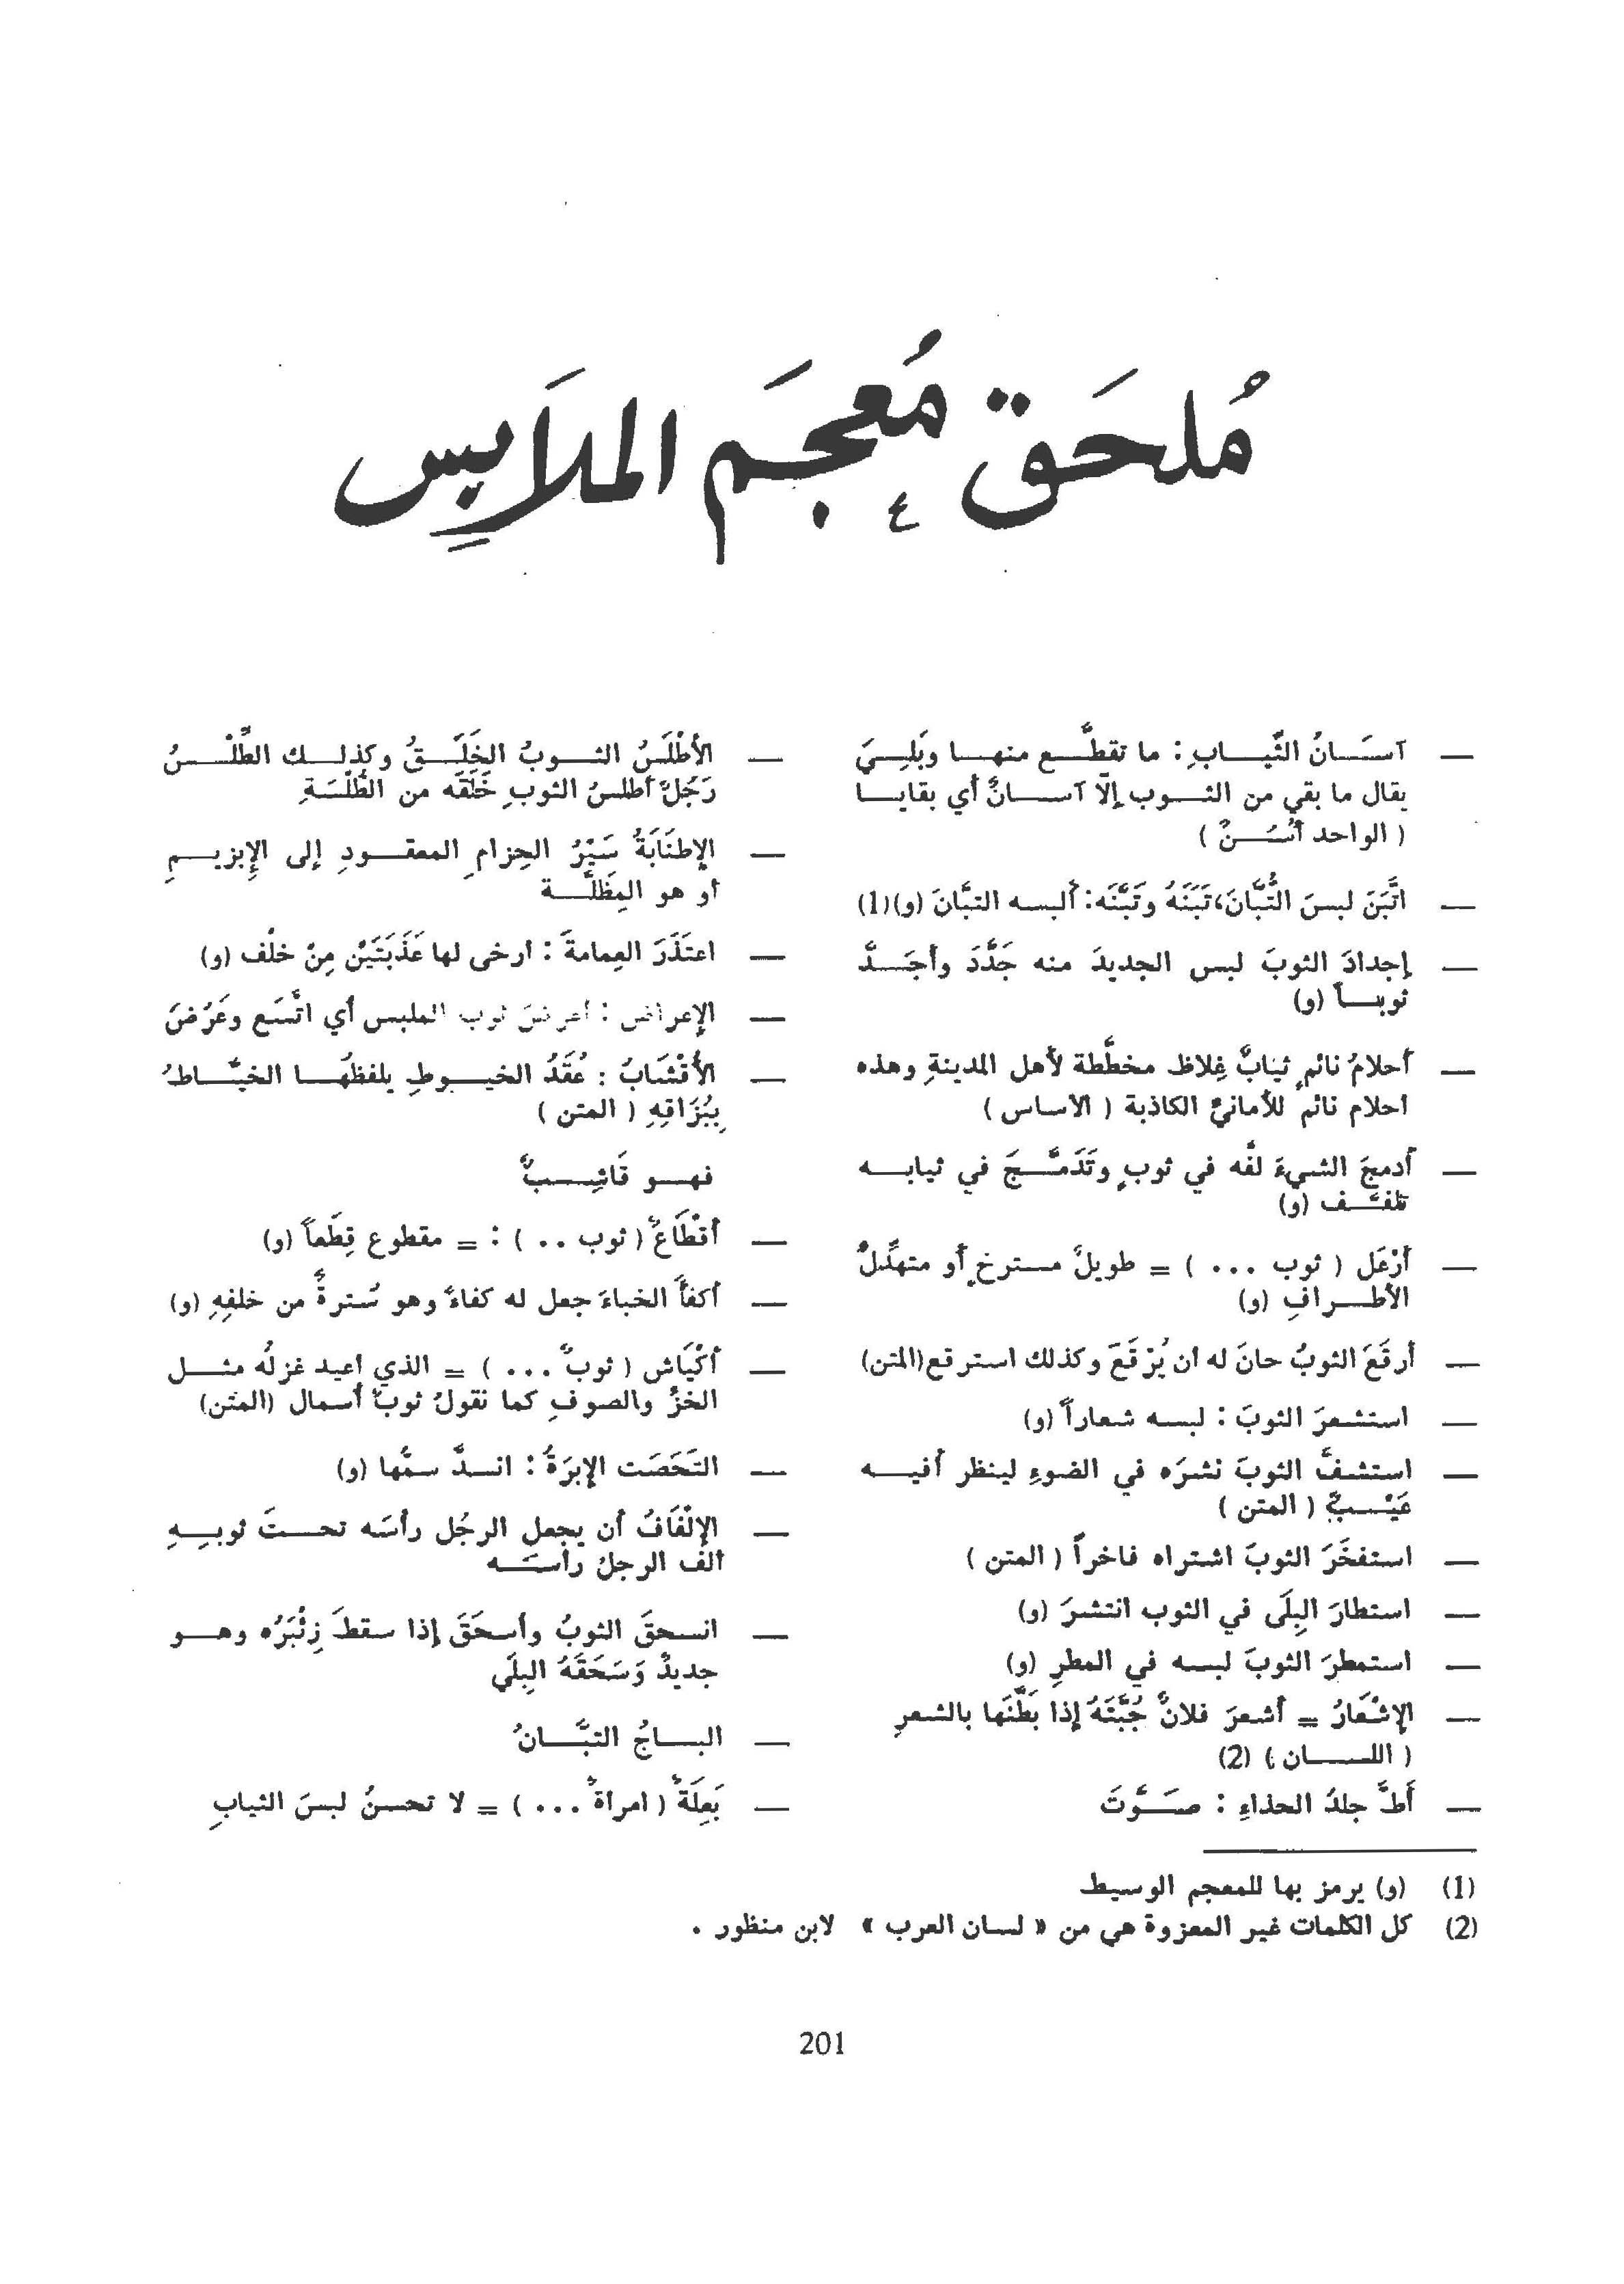 مُلحَق مُعجَم الملَابِس
— آسَانُ الثِّيابِ: ما تقطَّع منها وبَلِيَ
يقال ما بقي من الثوب إلّا آسانٌ أي بقايا
( الواحد أُسُنٌ )
— اتَّبَنَ لبسَ التُّبَّانَ، تَبَنَهُ وتَبَّنَه: ألبسه التبَّانَ (و)(1)
— إجدادَ الثوبَ لبس الجديدَ منه جَدَّدَ وأجَدَّ
ثوباً (و)
— أحلامُ نائمٍ ثيابٌ غِلاظ مخطَّطة لأهل المدينةِ وهذه
احلام نائم للأمانيّ الكاذبة ( الاساس )
— أدمجَ الشيءَ لفَّه في ثوبٍ وتَدَمَّجَ في ثيابه
تلفَّف (و)
— أرْعَل ( ثوب ... ) = طويلٌ مسترخٍ أو متهدِّلُ
الأطرافِ (و)
— أرقَعَ الثوبُ حانَ له ان يُرْقَعَ وكذلك استرقع (المتن)
— استشعرَ الثوبَ : لبسه شعاراً (و)
— استشفَّ الثوبَ نشرَه في الضوءِ لينظر أفيه
عَيْبٌ ( المتن )
— استفخَرَ الثوبَ اشتراه فاخراً ( المتن )
— استطارَ البِلَى في الثوب انتشرَ (و)
— استمطرَ الثوبَ لبسه في المطرِ (و)
— الإشْعَارُ = أشعرَ فلانٌ جُبَّتَهُ إذا بَطَّنَها بالشعرِ
( اللسان ) (2)
— أَطَّ جلدُ الحذاءِ : صوَّتَ
— الأطْلَسُ الثوبُ الخَلَقُ وكذلك الطِّلْسُ
رَجُلٌ أطلسُ الثوبِ خَلَقَه من الطُّلْسَةِ
— الإطنَابَةُ سَيْرُ الحِزامِ المعقودِ إلى الإبزيمِ
أو هو المِظَلَّة
— اعتَذَرَ العِمامةَ : ارخى لها عَذَبَتَيْنِ مِنْ خلْف (و)
— الإعراض : أعرضَ ثوب الملبس أي اتَّسَع وعَرُضَ
— الأقْشَابُ : عُقَدُ الخيوطِ يلفظُها الخيَّاطُ
بِبُزَاقِهِ ( المتن )
فهو قَاشِبٌ
— أقْطَاعٌ ( ثوب .. ) : = مقطوع قِطَعاً (و)
— أكفأَ الخباءَ جعل له كفاءً وهو سُترةٌ من خلفِهِ (و)
— أكْيَاش ( ثوبٌ ... ) = الذي أعيد غزلُه مثل
الخزّ والصوفِ كما نقولُ ثوبٌ أسمال (المتن)
— التَحَصَت الإبرَةُ : انسدَّ سمُّها (و)
— الإلْفَافُ أن يجعل الرجُل رأسَه تحتَ ثوبِهِ
ألفَّ الرجلُ رأسَه
— انسحقَ الثوبُ وأسحَقَ إذا سقطَ زِئْبَرُه وهو
جديدٌ وَسَحَقَهُ البِلَى
— الباجُ التبَّانُ
— بَعِلَةٌ ( امراةٌ ... ) = لا تحسنُ لبسَ الثيابِ
(1) (و) يرمز بها للمعجم الوسيط
(2) كل الكلمات غير المعزوة هي من « لسان العرب » لابن منظور .
201